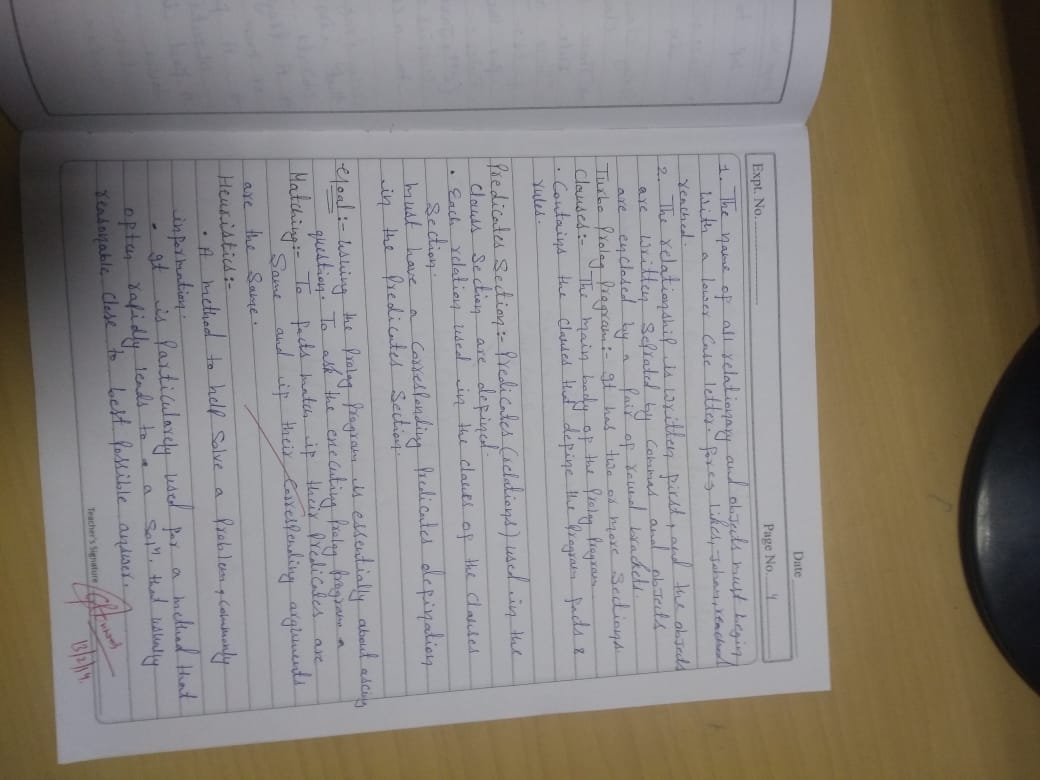 Date
Expt. No.
Page No. 4
1. The name of all relationary and objects must begin
with a lower case letter. for eg, likes, Johan, reached
reached.
2. The relationship is writhen first, and the objects
are written seprated by commas, and objects
are enclosed by a pair of round brackets.
Turbo Prolog Program:- It has two or more Sections.
Clauses:- The main body of the Prolog Program
• Contains the clauses that define the Program facts &
rules.
Predicates Section:- Predicates (relations) used in the
clauss Section are defined.
• Each relation used in the claues of the clauses
Section.
must have a corresponding Predicates defination
in the Predicates Section.
Goal:- using the Prolog Program is essentially about
question. To ask the executing Prolog Program a
Matching:- To facts match if their Predicates are
Same and if their corresponding arguments
are the Same.
Heuristics:-
• A method to help Solve a Problem, commonly
information.
• It is Particularely used for a method that
often rapidly leads to a Solⁿ. that usually
reasonable close to best Possible answer.
Teacher's Signature
13/2/19.